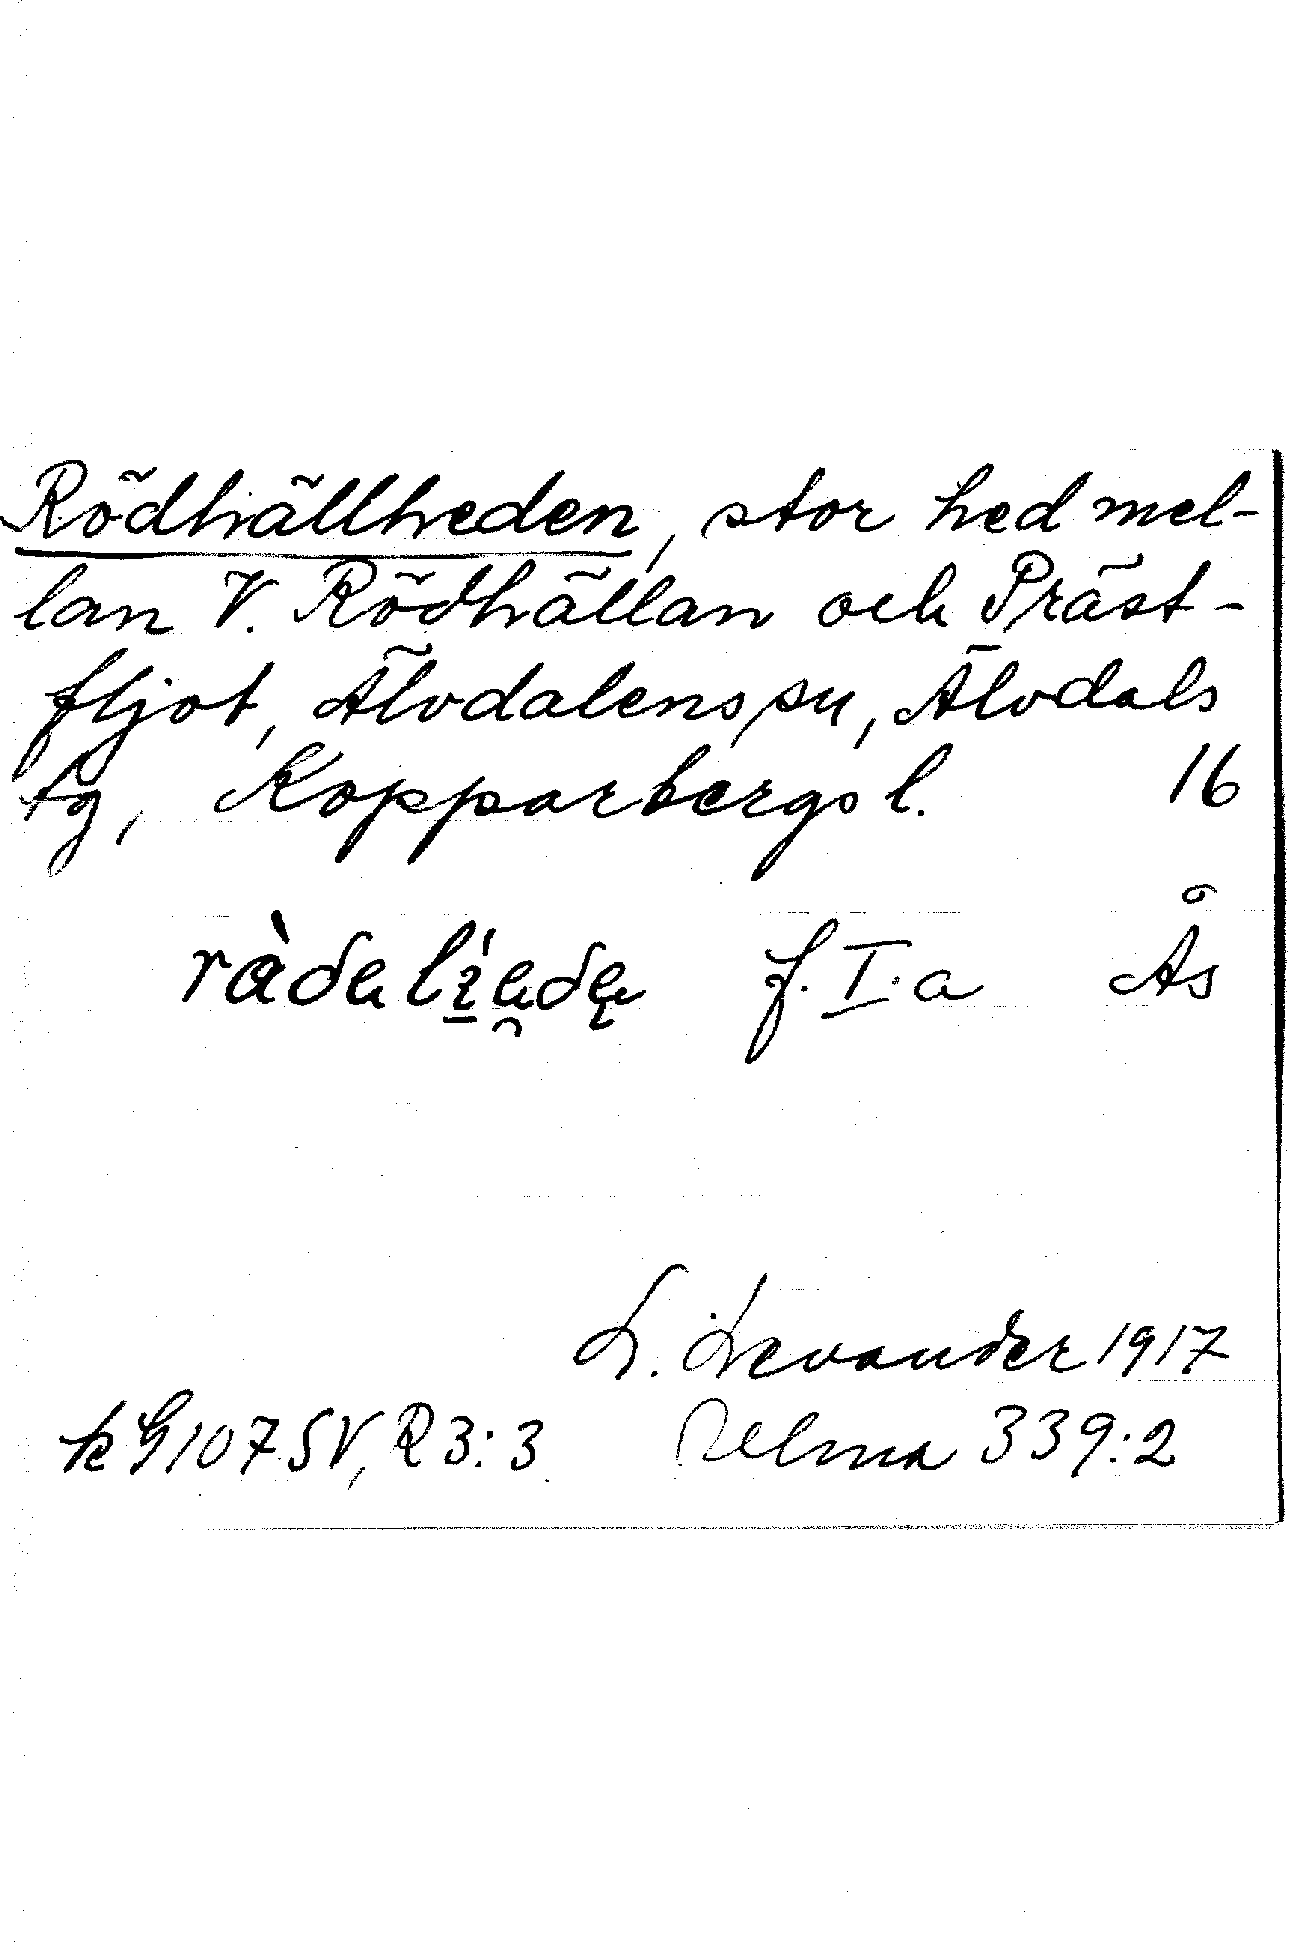 Rödhällheden, stor hed mel-
lan V. Rödhällan och Präst-
fljot, Älvdalens sn, Älvdals
tg, Kopparbergs l. 16
f. I.a Ås
L. Levander 1917
k G107 SV, R 3:3 Ulma 339:2